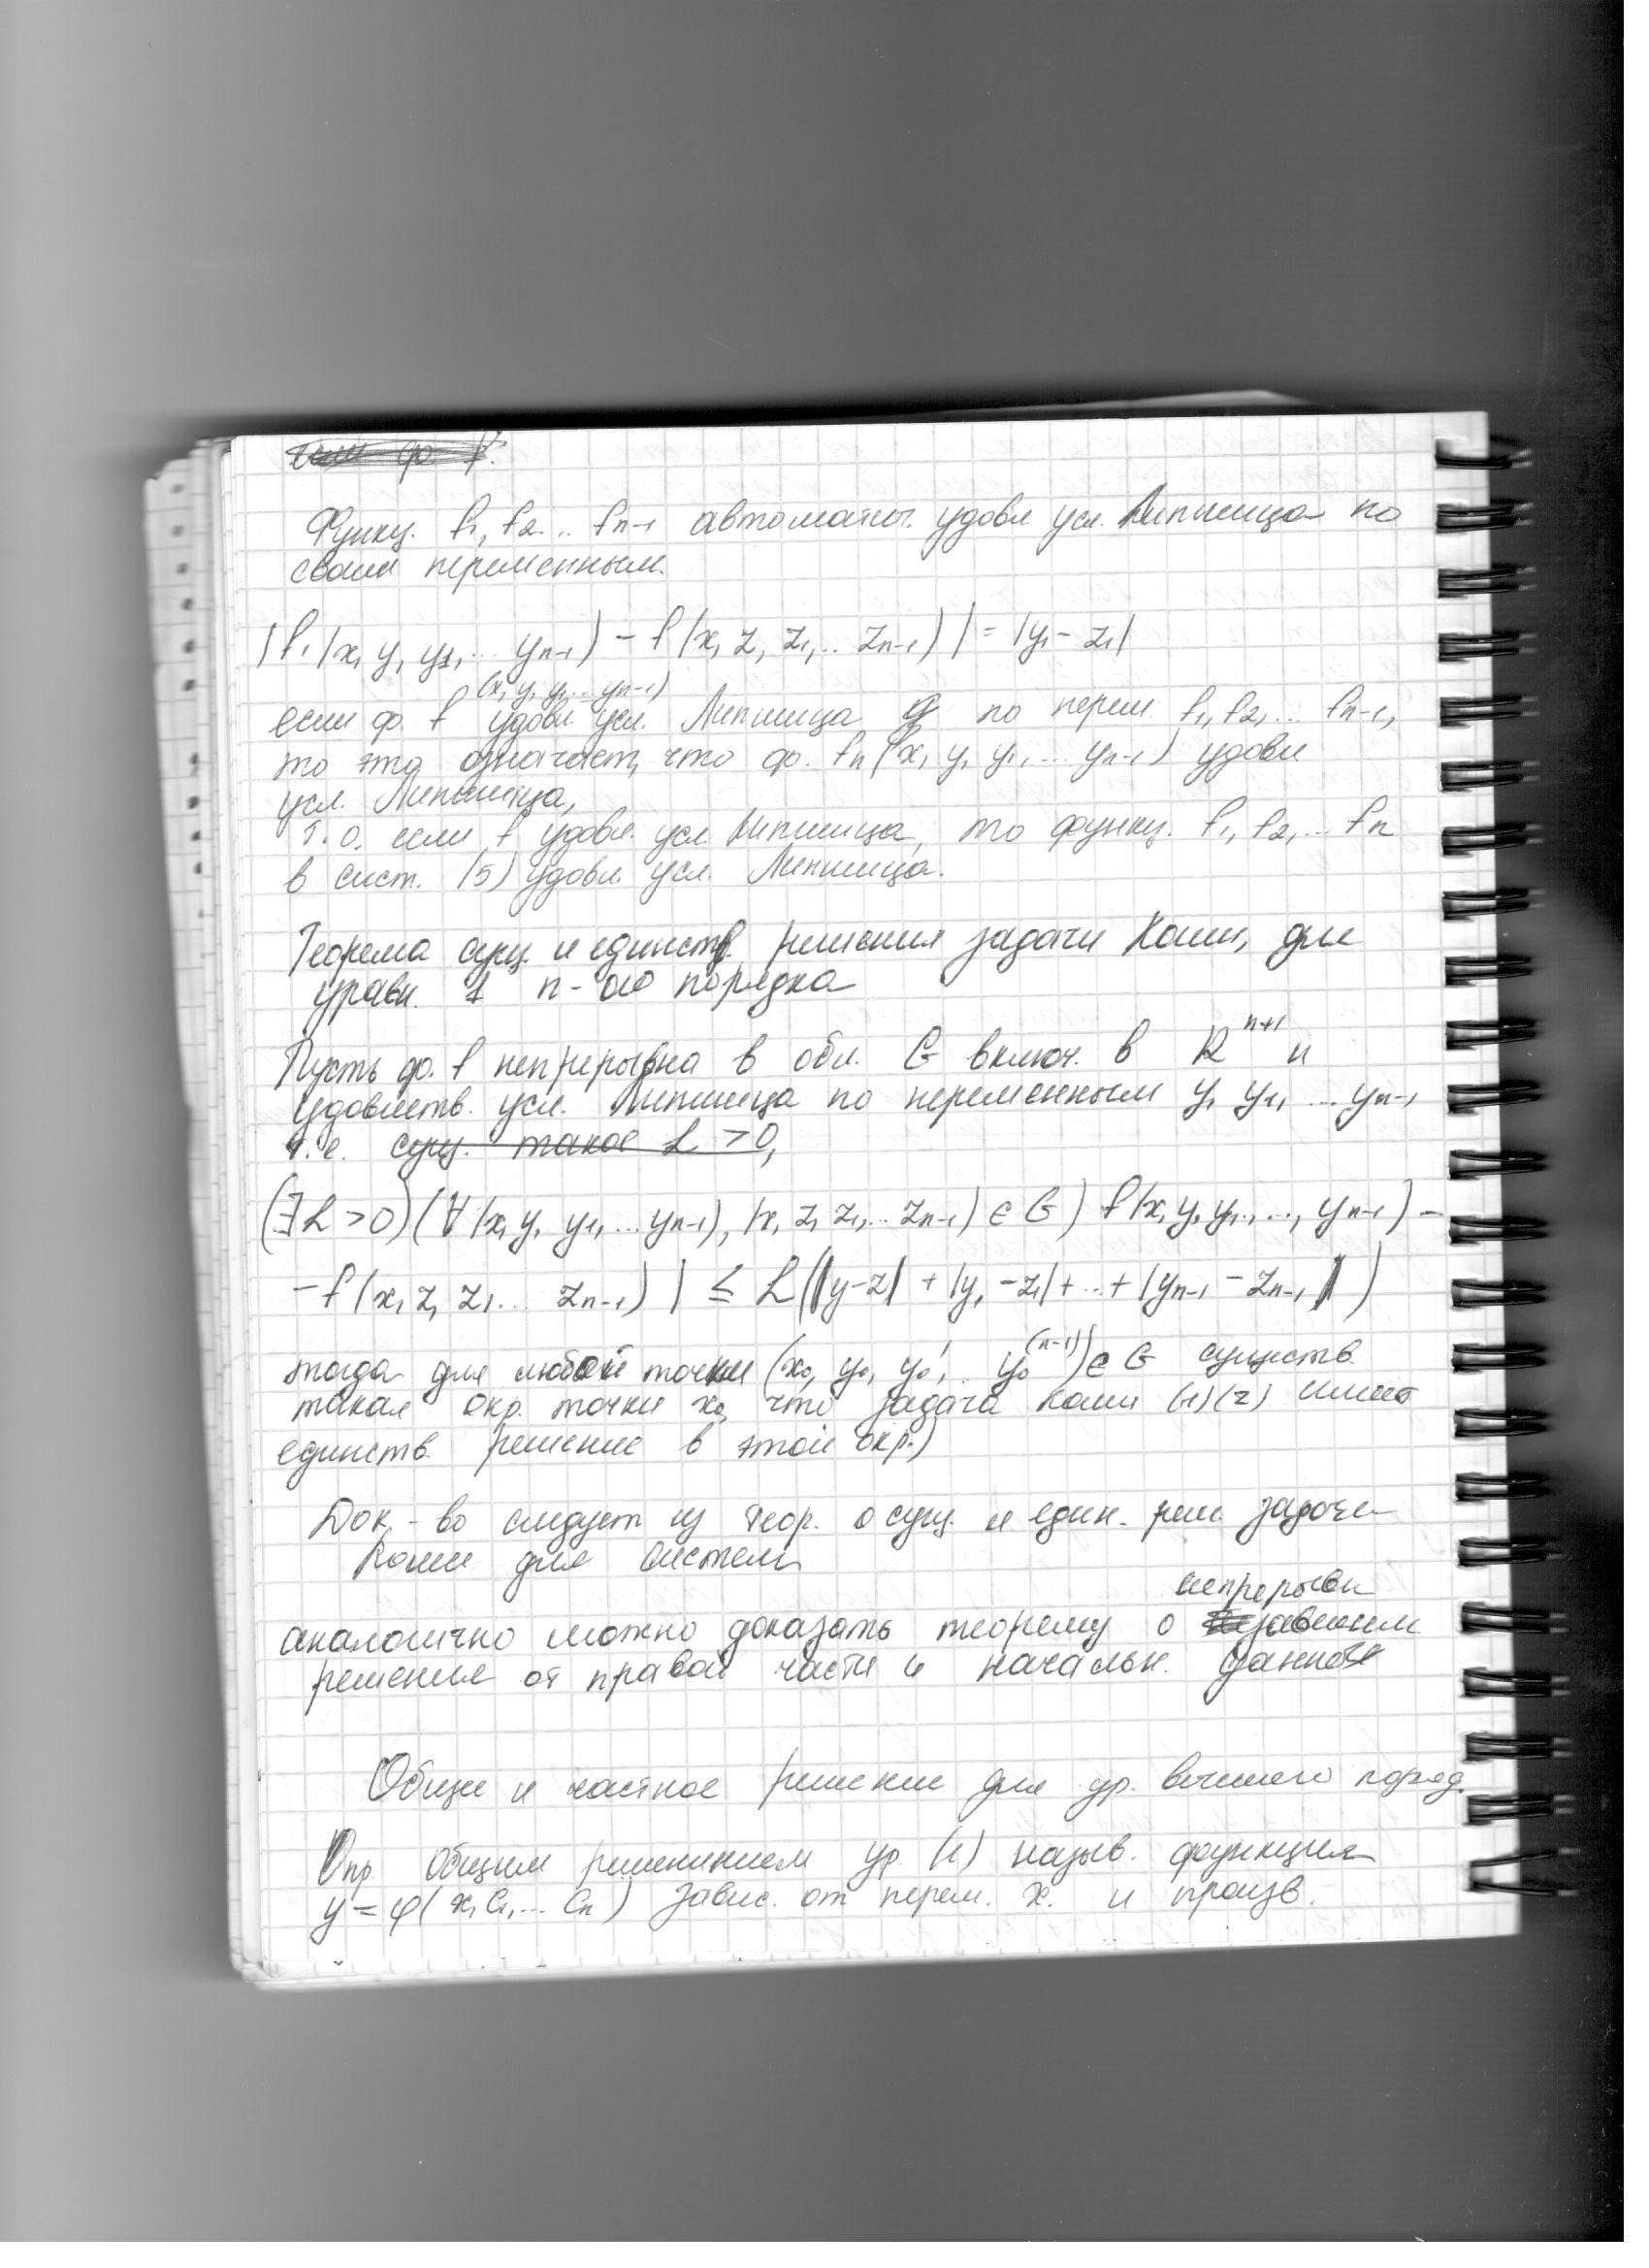 Функц. f₁, f₂ ... fn-1 автоматич. удовл усл. Липшица по
своим переменным.
|f₁(x, y, y₁, ... yn-1) - f(x, z, z₁, .. zn-1)| = |y₁ - z₁|
(x, y, y₁ ... yn-1)
если ф. f удовл. усл. Липшица по перем. f₁, f₂, ... fn-1,
то это означает, что ф. fn(x, y, y₁, ... yn-1) удовл
усл. Липшица,
т.о. если f удовл. усл. Липшица, то функц. f₁, f₂, ... fn
в сист. (5) удовл. усл. Липшица.
Теорема сущ. и единств. решения задачи Коши, для
уравн. n-ого порядка
Пусть ф. f непрерывна в обл. G включ. в R^n+1 и
удовлетв. усл. Липшица по переменным y, y₁, ... yn-1
т.е. сущ. такое L > 0,
(∃L > 0)(∀(x, y, y₁, ... yn-1), (x, z, z₁, ... zn-1) ∈ G) f(x, y, y₁, ..., yn-1) -
- f(x, z, z₁ ... zn-1)| ≤ L(|y-z| + |y₁ - z₁| + ... + |yn-1 - zn-1|)
тогда для любой точки (x₀, y₀, y₀', .. y₀^(n-1)) ∈ G существ.
такая окр. точки x₀, что задача Коши (1)(2) имеет
единств. решение в этой окр.)
Док-во следует из теор. о сущ. и един. реш. задачи
Коши для систем
непрерывн
аналогично можно доказать теорему о зависим.
решения от правой части и начальн. данных
Общее и частное решение для ур. высшего поряд.
Опр общим решением ур. (1) назыв. функция
y = φ(x, c₁, ... cn) завис. от перем. x. и произв.